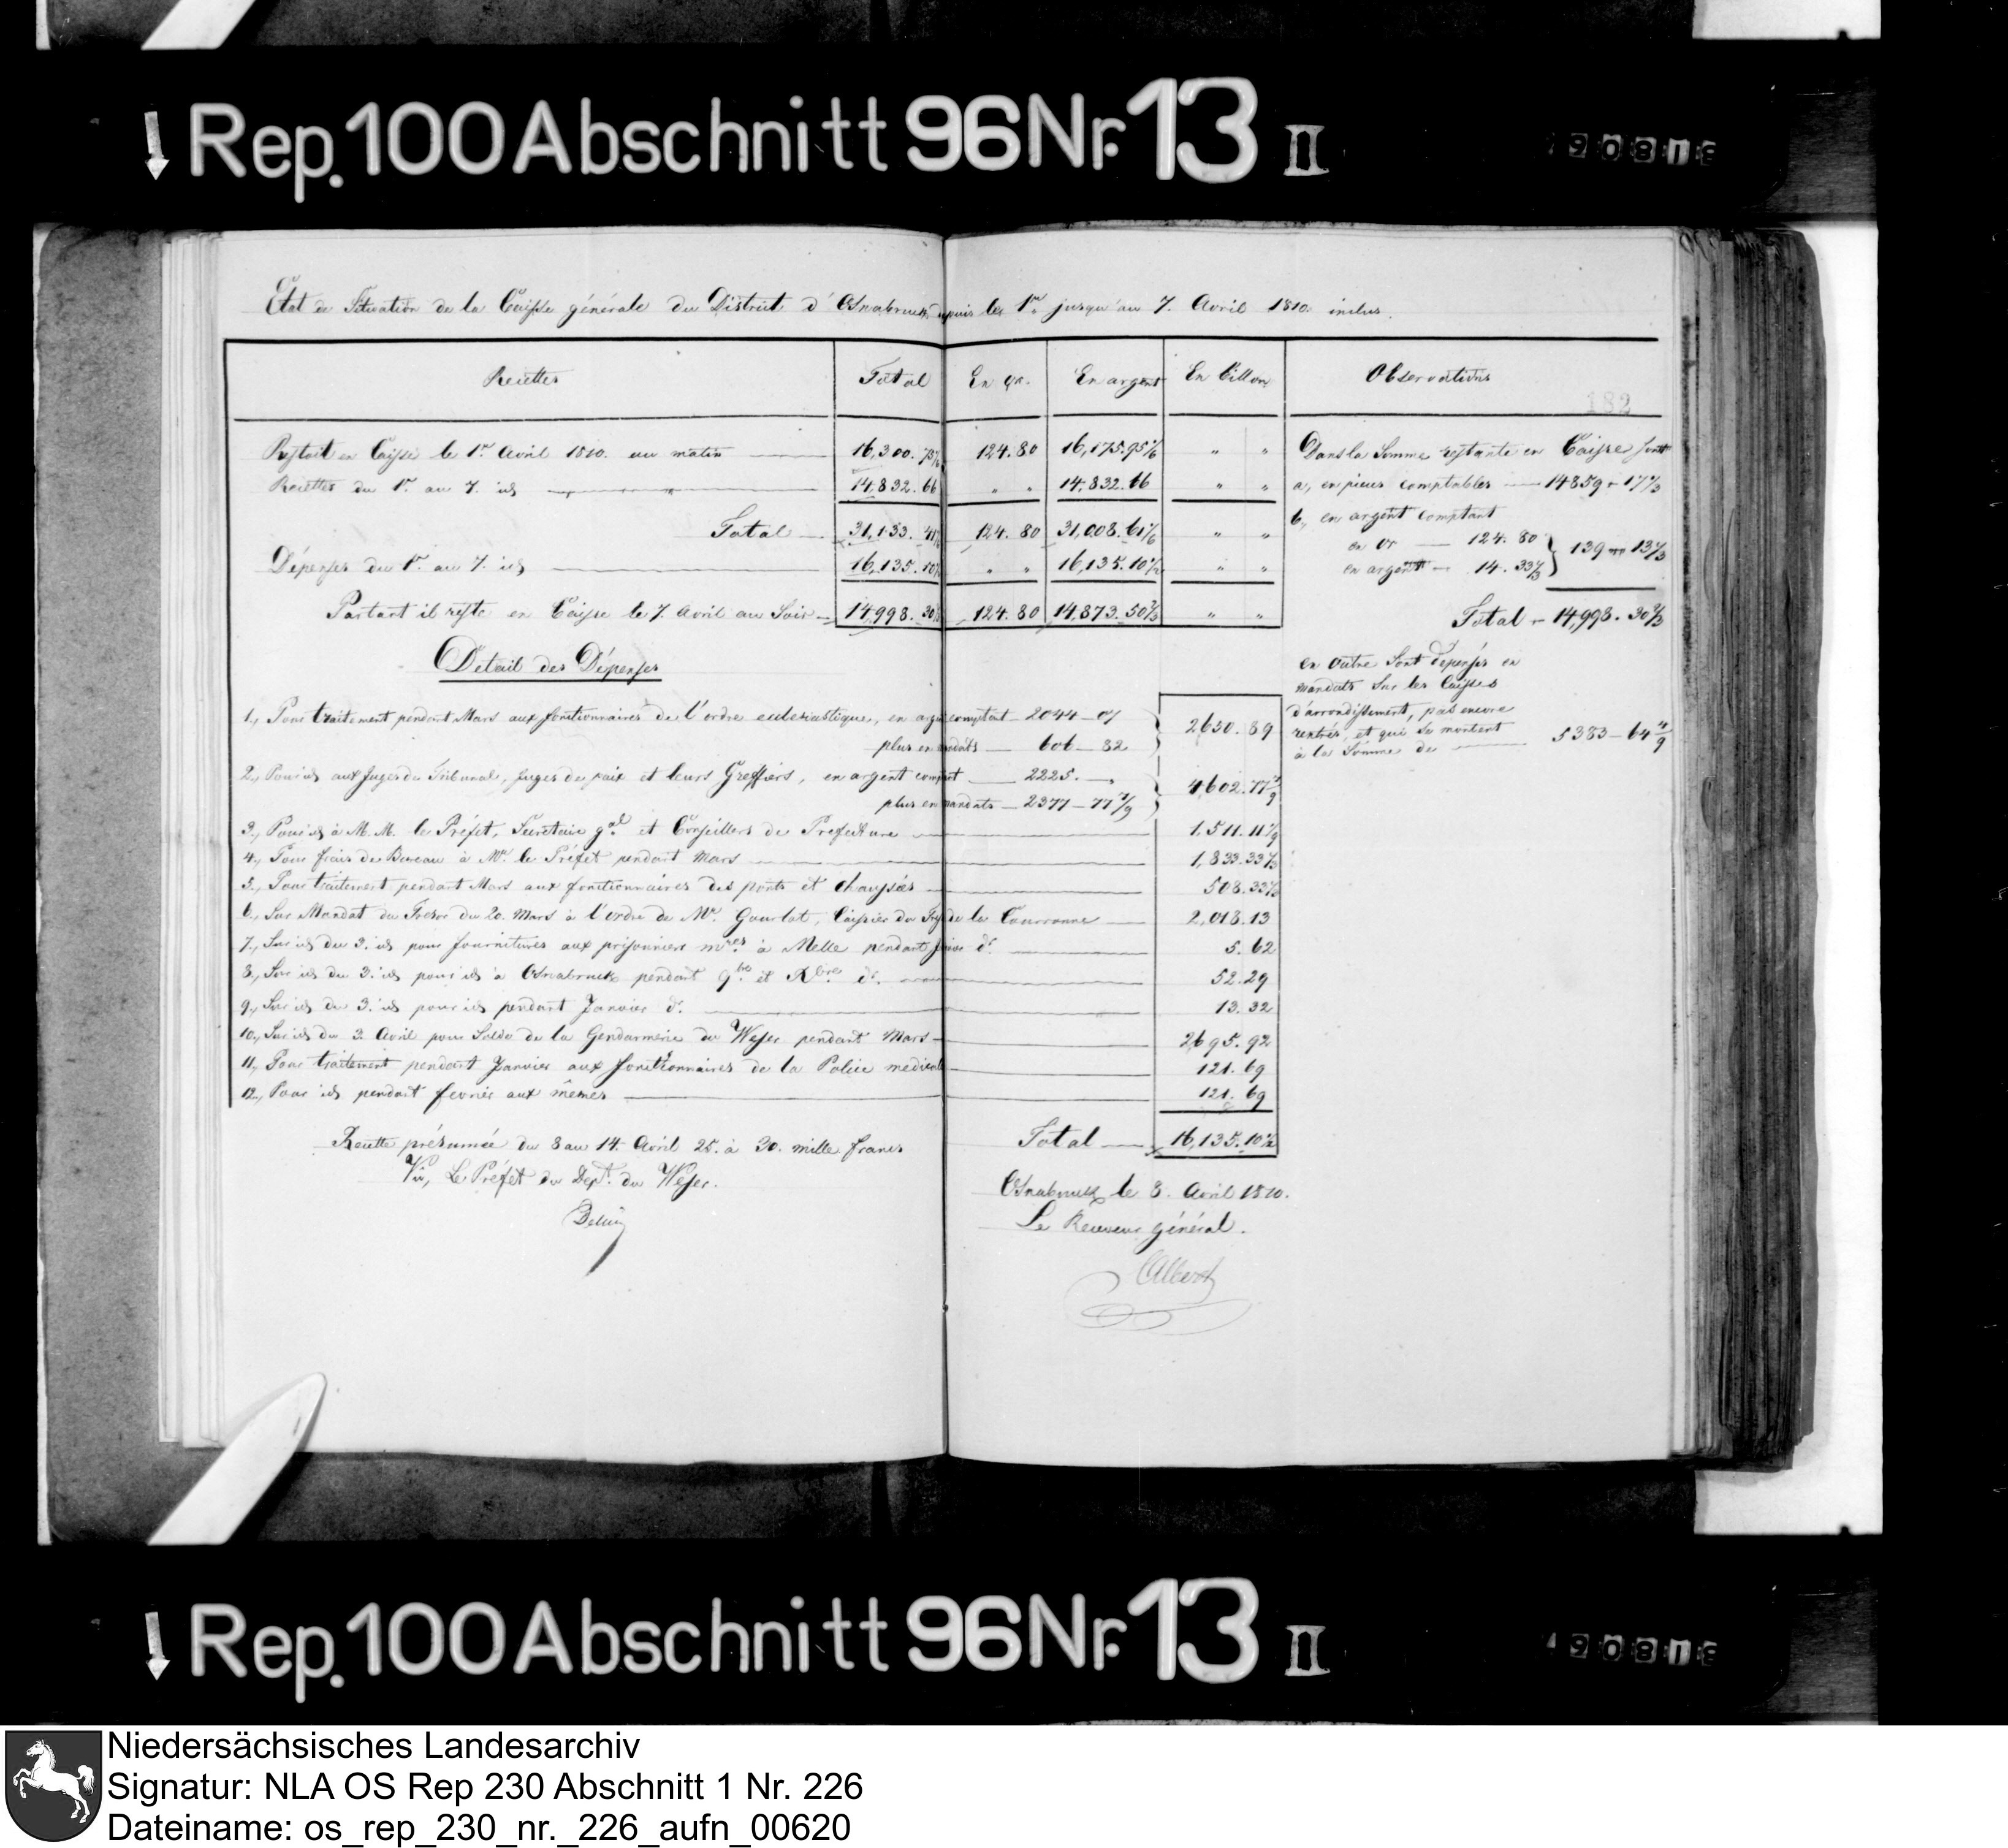 Rep. 100 Abschnitt 96 Nr. 13 II
Etat de Situation de la Caisse générale du District d'Osnabruck depuis le 1er jusqu'au 7. Avril 1810. inclus.
Recettes Total En or. En argent En billon Observations
182
Restoit en Caisse le 1er Avril 1810. au matin 16,300. 75 124.80 16,175.95 5/6 " "
Recettes du 1er au 7. id 14,832.66 " " 14,832.66 " "
Total 31,133. 41 124.80 31,008.61 5/6 " "
Dépenses du 1er au 7. id 16,135.10 " " 16,135.10 " "
Partant il reste en Caisse le 7. Avril au Soir 14,998.30 124.80 14,873.50 2/3 " "
Dans la Somme restante en Caisse sont
a, en pieces comptables 14859 - 17 1/3
b, en argent comptant
en or 124. 80
en argent 14. 33 1/3 } 139 - 13 1/3
Total 14,998. 30 2/3
en outre sont depensés en
mandats sur les Caisses
d'arrondissement, pas encore
rentrés, et qui se montent
à la Somme de 5383 - 64 4/9
Détail des Dépenses
1., Pour traitement pendant Mars aux fonctionnaires de l'ordre ecclesiastique, en argent comptant 2044 - 07
plus en mandats 606 - 82 } 2650. 89
2., Pour id aux Juges du Tribunal, Juges de paix et leurs Greffiers, en argent comptant 2225. -
plus en mandats 2377 - 77 7/9 } 4,602.77 7/9
3., Pour id à M.M. le Préfet, Secretaire gal et Conseillers de Prefecture 1,511.11 1/9
4., Pour frais de Bureau à Mr. le Préfet pendant Mars 1,833.33 1/3
5., Pour traitement pendant Mars aux fonctionnaires des ponts et chaussées 508.33
6., Sur Mandat du Tresor du 20. Mars à l'ordre de Mr. Gourlot, Caissier du Trésor de la Couronne 2,018.13
7., Sur id du 3. id pour fournitures aux prisonniers mres à Melle pendant dr. 5. 62
8., Sur id du 3. id pour id à Osnabruck pendant 9bre et Xbre dr. 52.29
9., Sur id du 3. id pour id pendant Janvier dr. 13. 32
10., Sur id du 3. Avril pour Solde de la Gendarmerie du Weser pendant Mars 2695.92
11., Pour traitement pendant Janvier aux fonctionnaires de la Police medicale 121. 69
12., Pour id pendant fevrier aux mêmes 121. 69
Total 16,135.10
Recette présumée du 8 au 14. Avril 25. à 30. mille francs
Vu, Le Préfet du Dept. du Weser.
Osnabruck le 8. Avril 1810.
Le Receveur général.
Rep. 100 Abschnitt 96 Nr. 13 II
Niedersächsisches Landesarchiv
Signatur: NLA OS Rep 230 Abschnitt 1 Nr. 226
Dateiname: os_rep_230_nr._226_aufn_00620